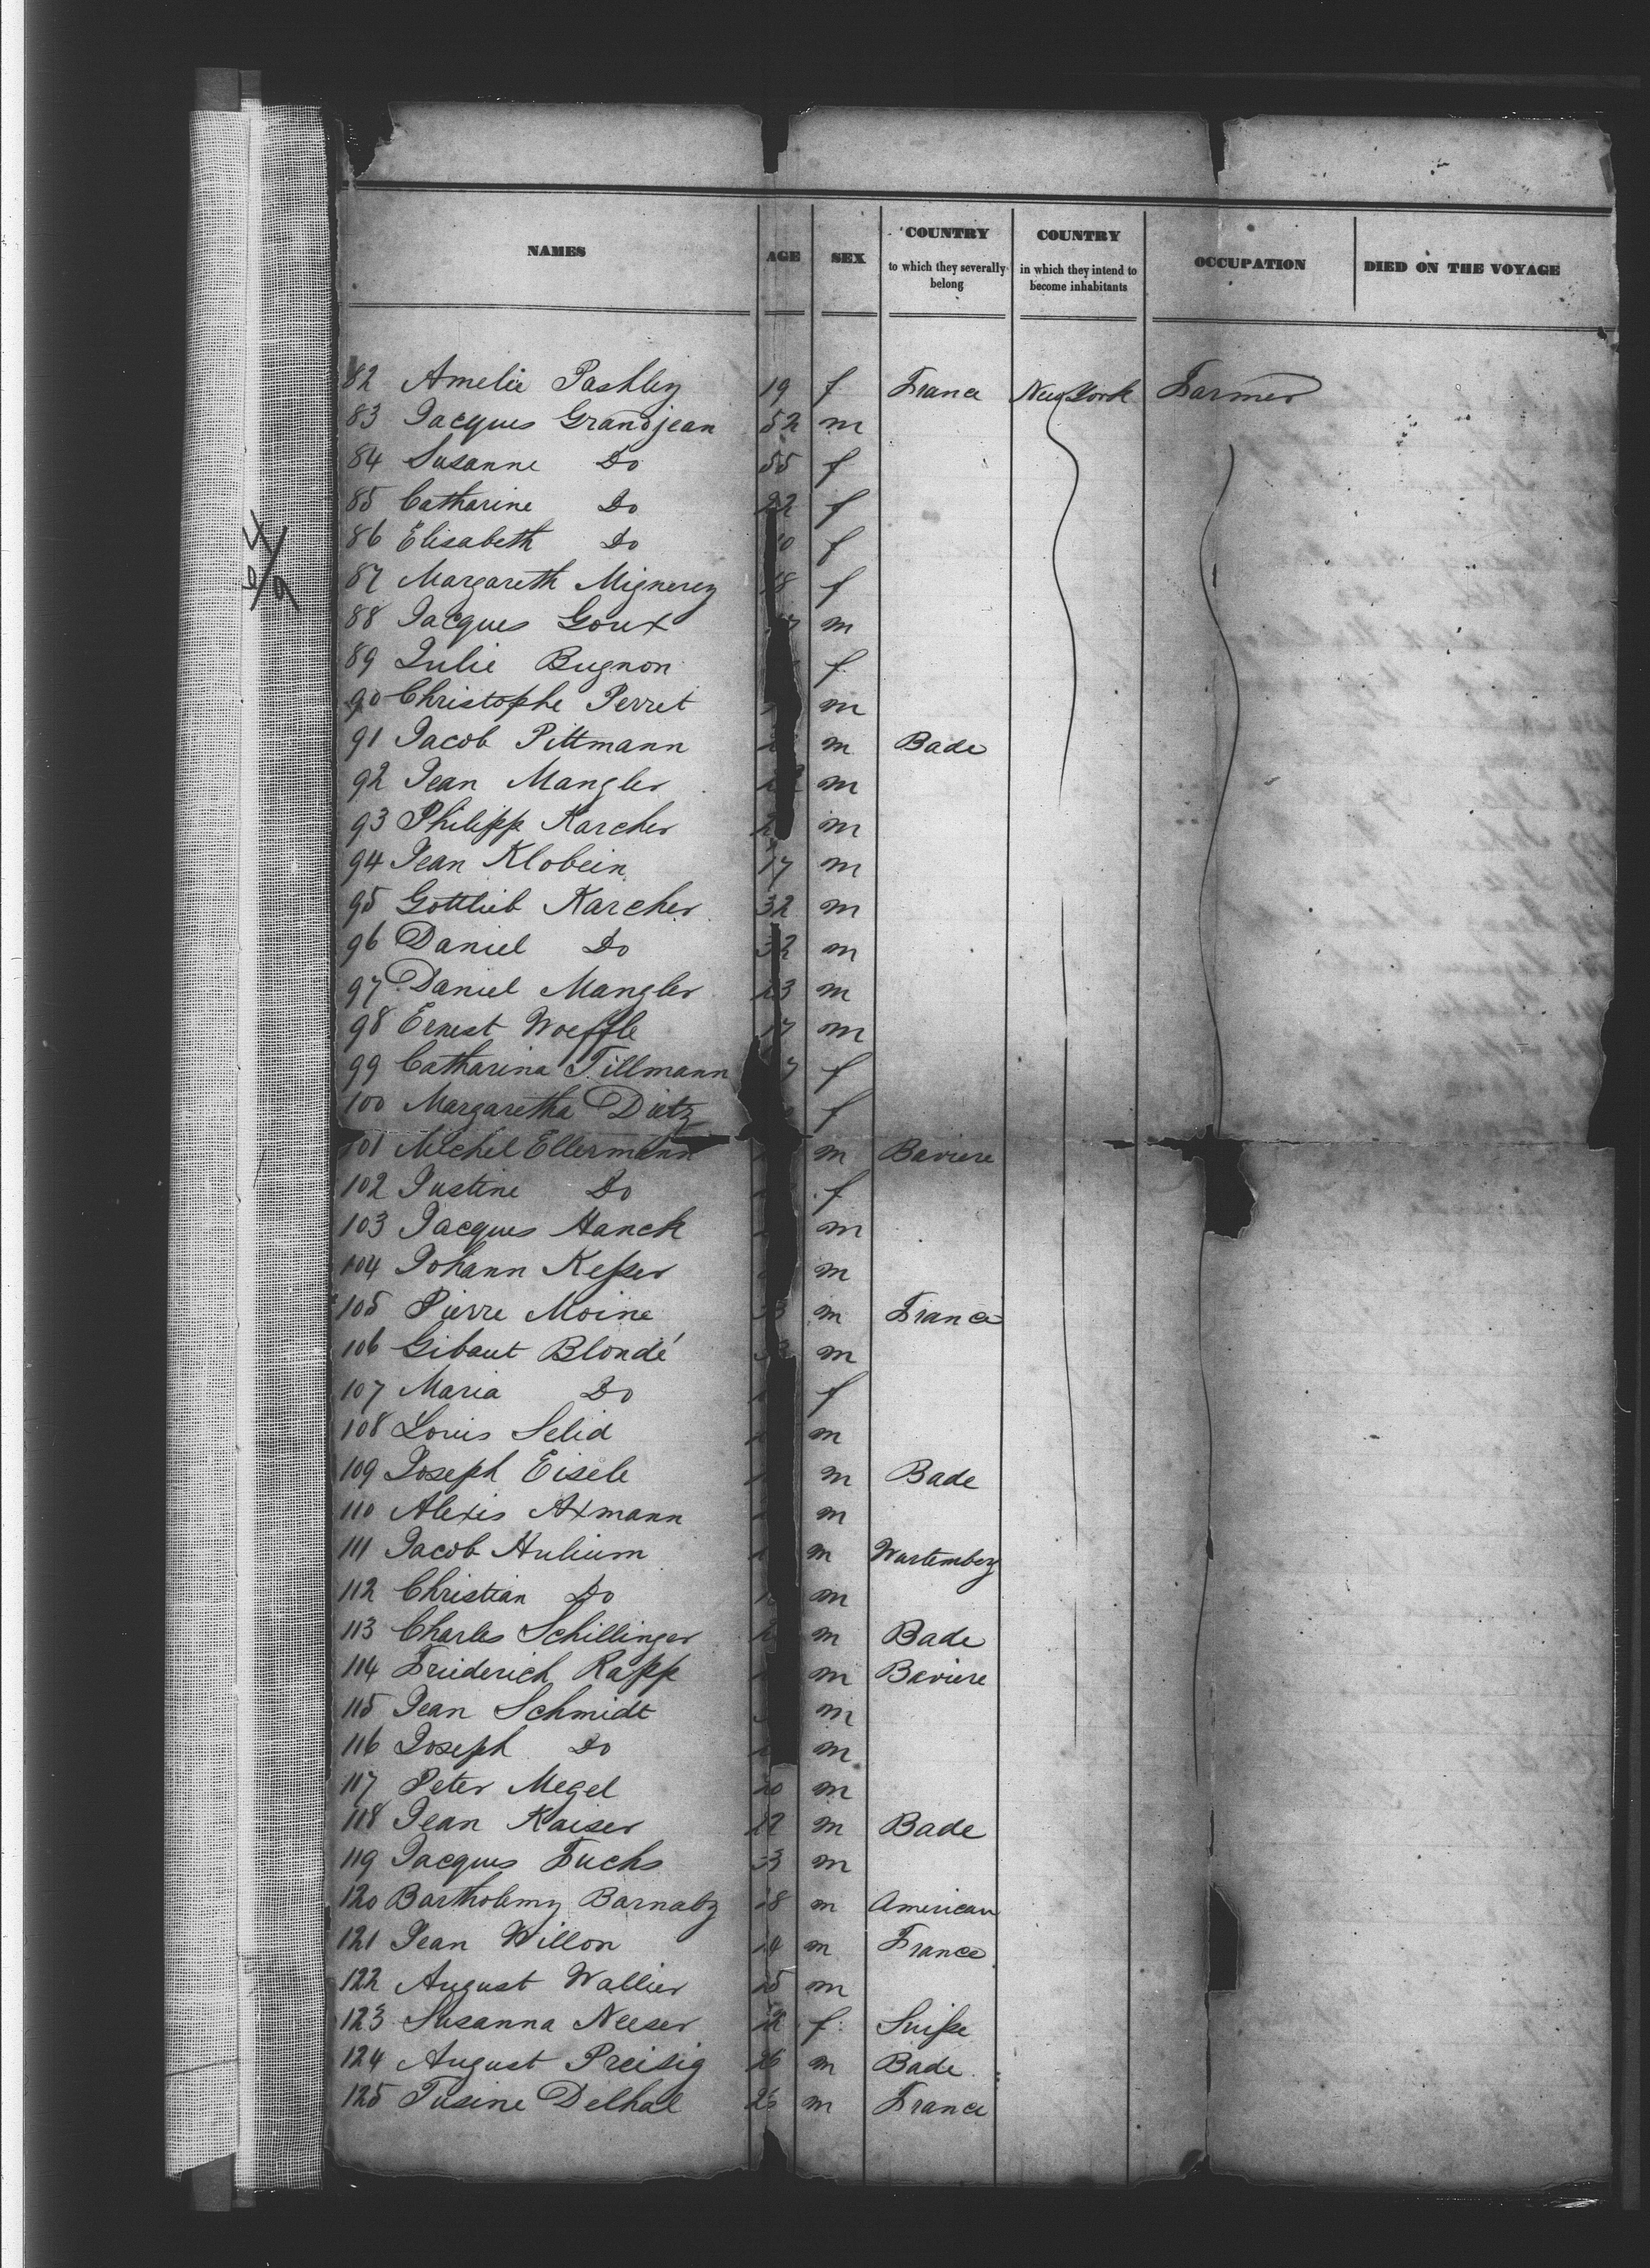 NAMES AGE SEX COUNTRY to which they severally belong COUNTRY in which they intend to become inhabitants OCCUPATION DIED ON THE VOYAGE
82 Amelie Pashley 19 f France New York Farmer
83 Jacques Grandjean 52 m
84 Susanne Do 55 f
85 Catharine Do 22 f
86 Elisabeth Do f
87 Margareth Mignerey 18 f
88 Jacques Goux m
89 Julie Bugnon f
90 Christophe Perret m
91 Jacob Pittmann m Bade
92 Jean Mangler m
93 Philipp Karcher m
94 Jean Klobein 17 m
95 Gottlieb Karcher 32 m
96 Daniel Do 32 m
97 Daniel Mangler 23 m
98 Ernest Woeffle 17 m
99 Catharina Tillmann f
100 Margaretha Dietz f
101 Michel Ellermann m Baviere
102 Justine Do f
103 Jacques Hanck m
104 Johann Keßer m
105 Pierre Moine m France
106 Gibaut Blondé m
107 Maria Do f
108 Louis Selid m
109 Joseph Eisele m Bade
110 Alexis Axmann m
111 Jacob Hulium m Wurtemberg
112 Christian Do m
113 Charles Schillinger m Bade
114 Friederich Rapp m Baviere
115 Jean Schmidt m
116 Joseph Do m
117 Peter Megel 20 m
118 Jean Kaiser 22 m Bade
119 Jacques Fuchs 33 m
120 Bartholemy Barnaby 28 m American
121 Jean Willon 24 m France
122 August Wallier 25 m
123 Susanna Neeser 22 f Suiße
124 August Preisig 26 m Bade
125 Tusine Delhal 26 m France